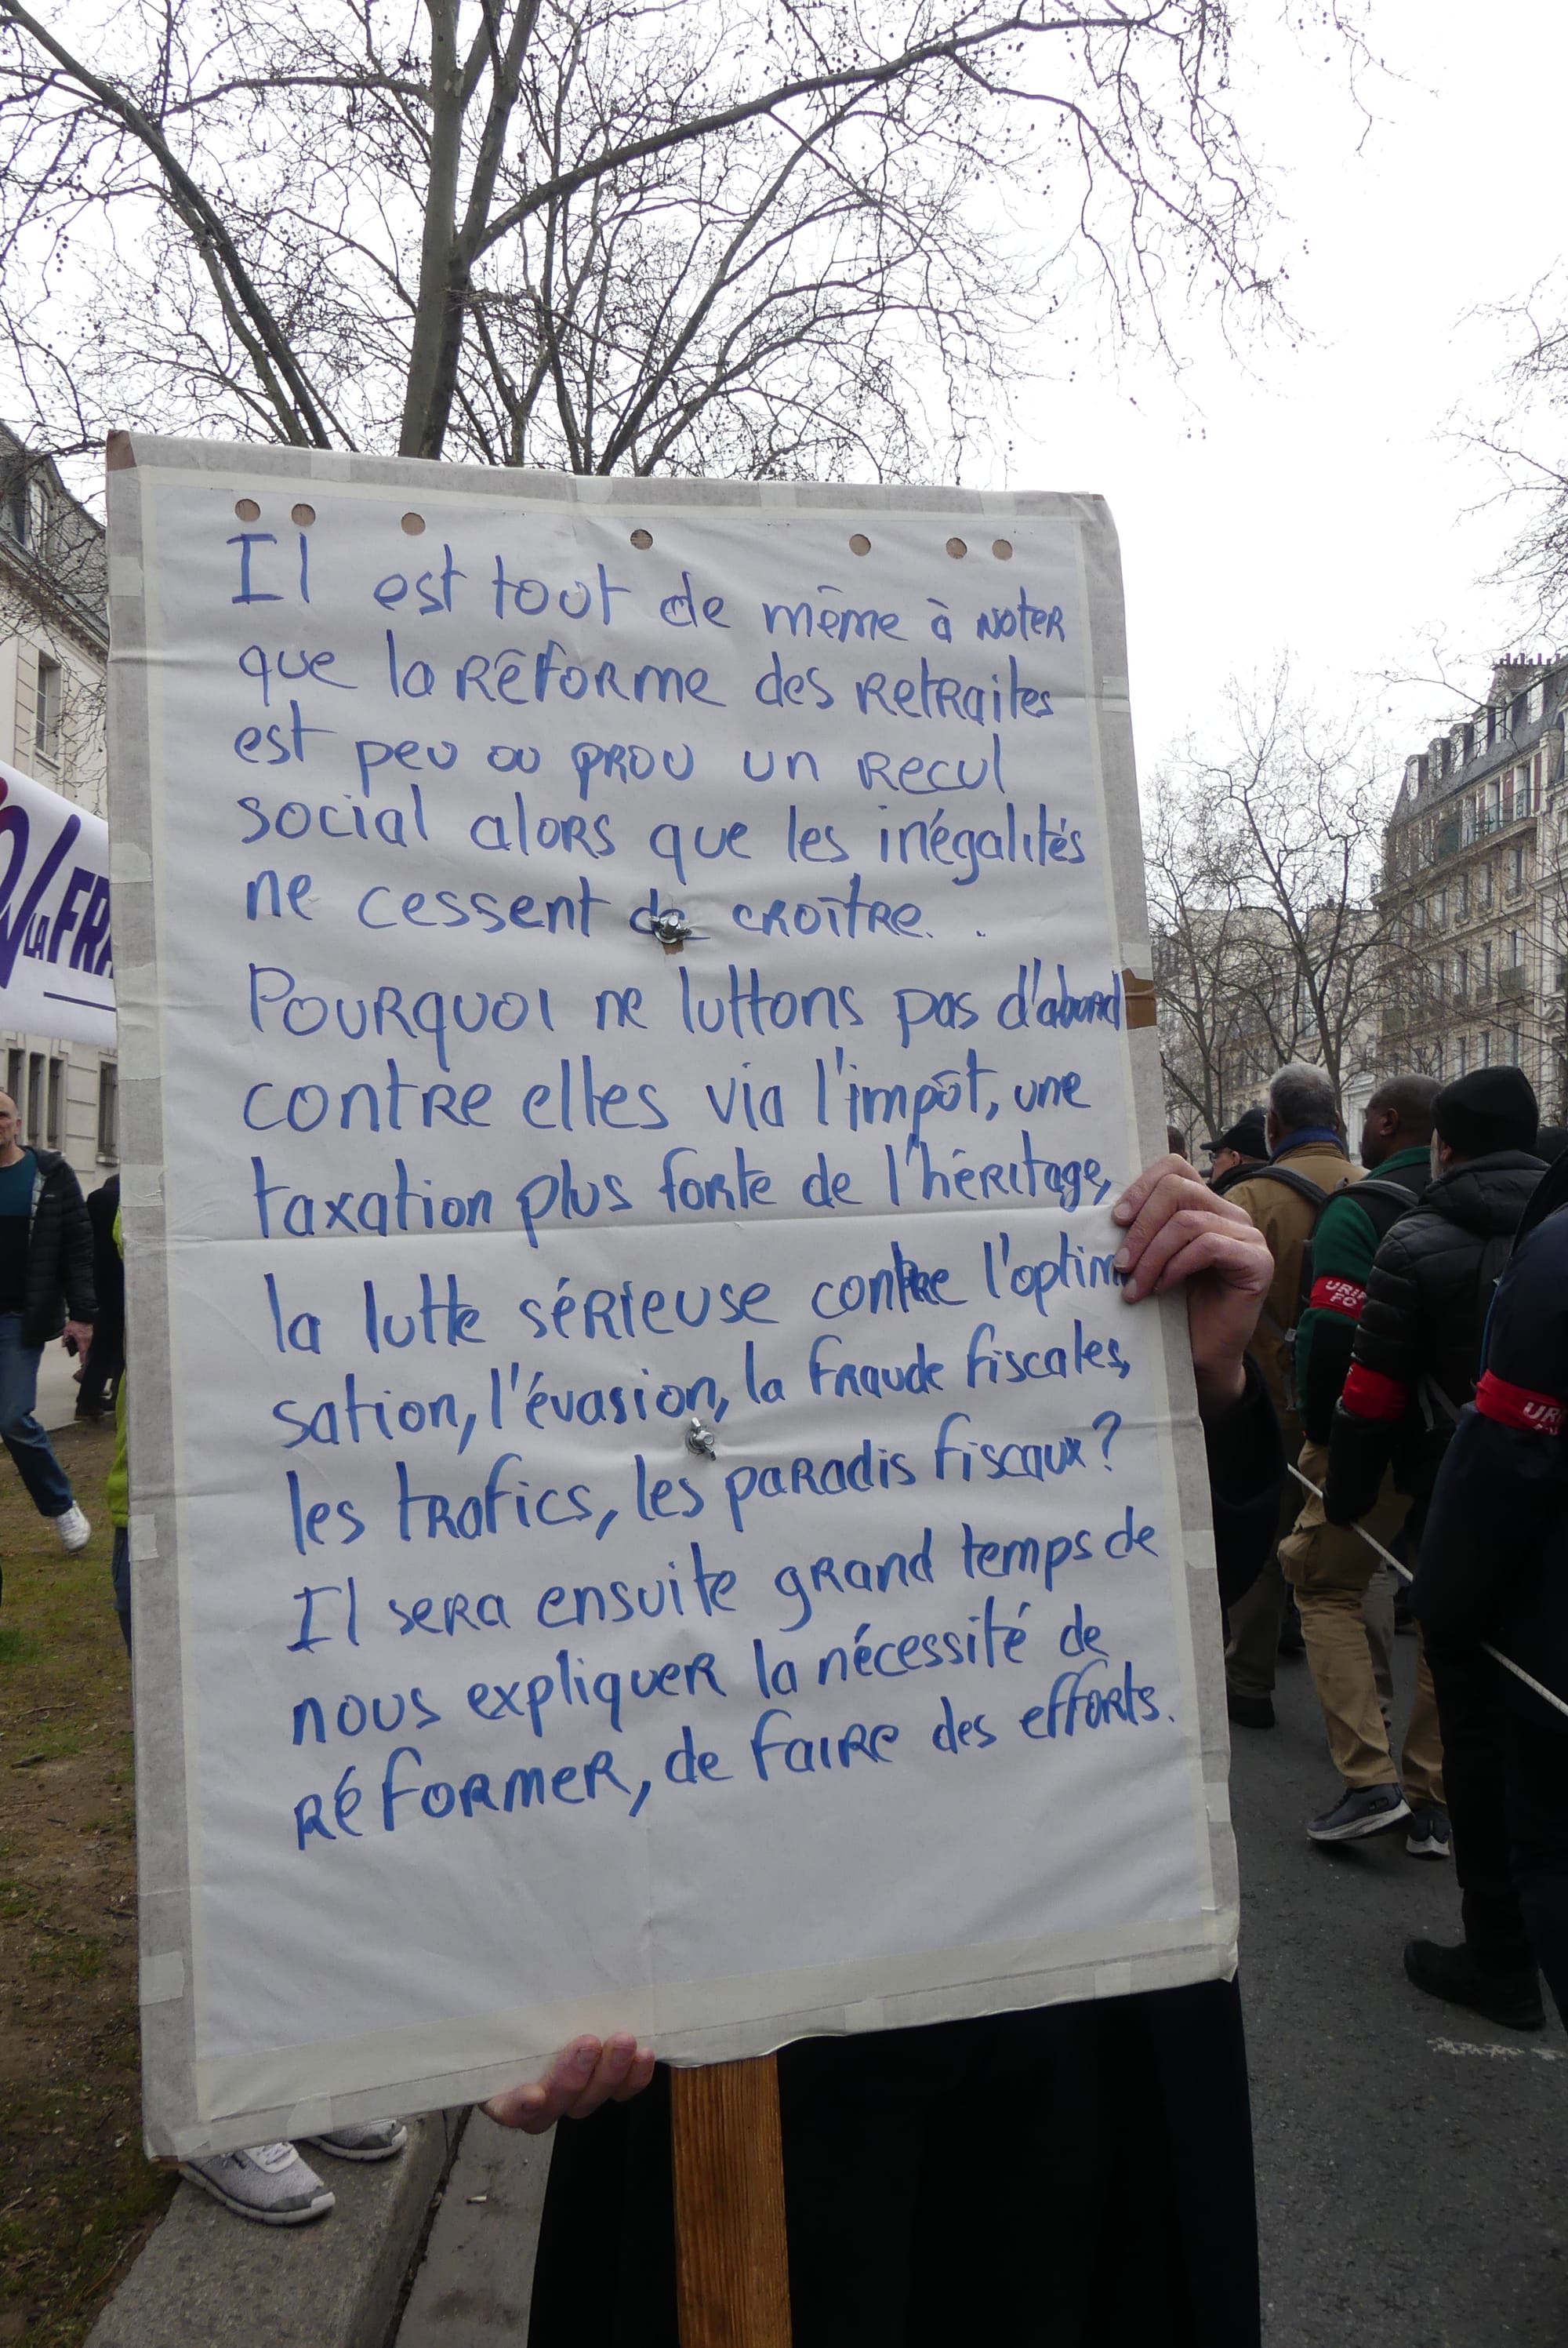 Il est tout de même à noter
que la réforme des retraites
est peu ou prou un recul
social alors que les inégalités
ne cessent de croître. .
Pourquoi ne luttons pas d'abord
contre elles via l'impôt, une
taxation plus forte de l'héritage,
la lutte sérieuse contre l'optim
sation, l'évasion, la fraude fiscales,
les trafics, les paradis fiscaux ?
Il sera ensuite grand temps de
nous expliquer la nécessité de
réformer, de faire des efforts.
LA FRA
URIF
FO
UR